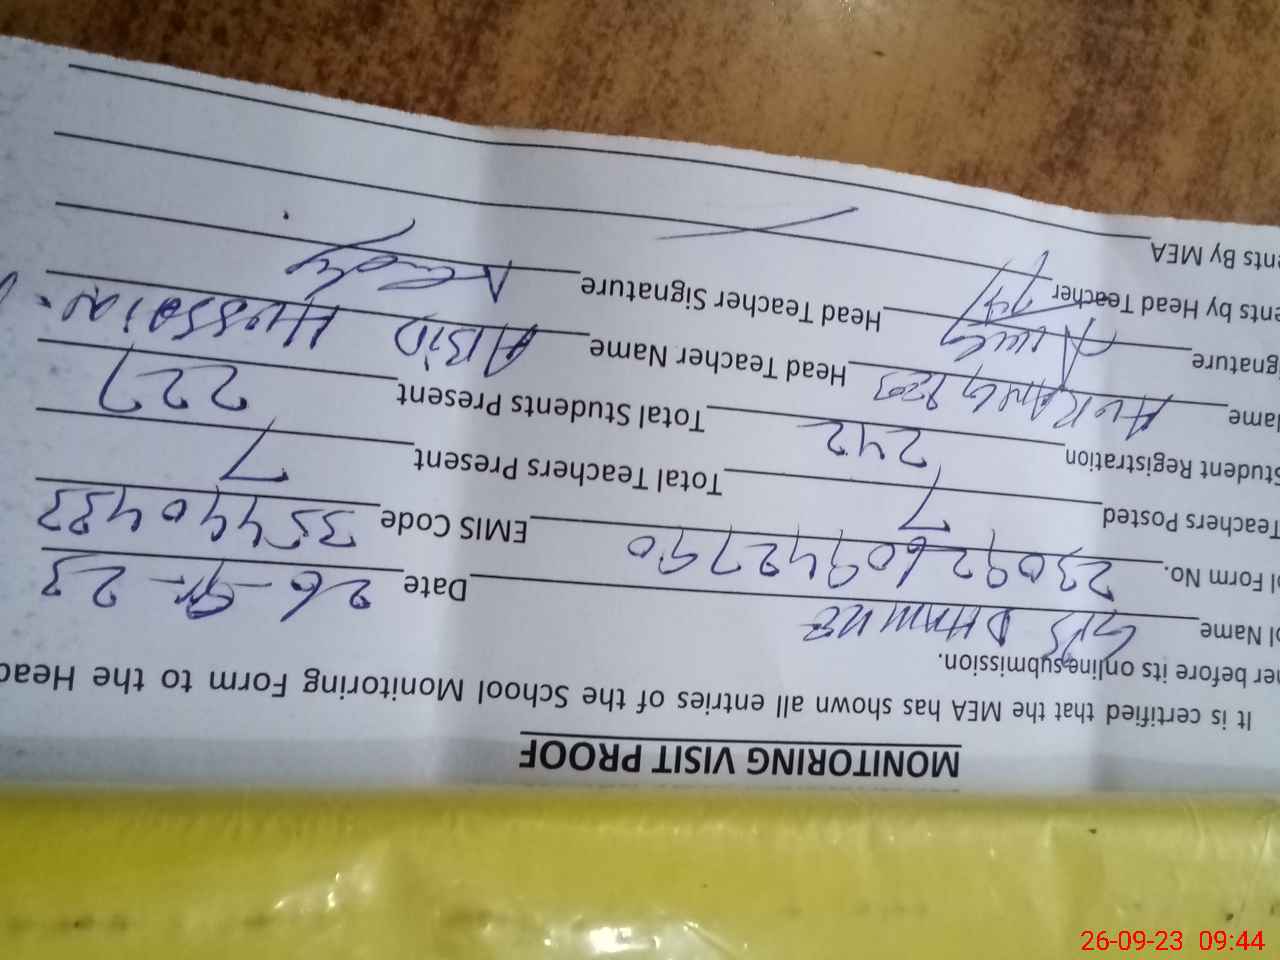 MONITORING VISIT PROOF
It is certified that the MEA has shown all entries of the School Monitoring Form to the Head
her before its online submission.
ol Name GPS Date 26-9-23
ol Form No. 23092609442790 EMIS Code 35440433
Teachers Posted 7 Total Teachers Present 7
Student Registration 242 Total Students Present 227
ame Head Teacher Name ABiD HUSSAiN
gnature Head Teacher Signature
ents by Head Teacher
ents By MEA
26-09-23 09:44